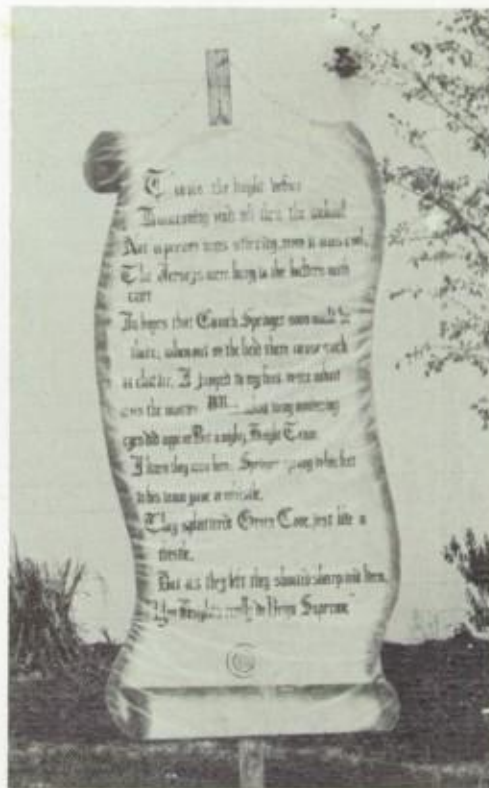 T was the night before
Homecoming and all thru the school
Not a person was stirring, even it was cool.
The Jerseys were hung in the lockers with
care
In hopes that Coach Springer soon would be
there, when out on the field there arose such
a clatter, I jumped to my feet to see what
was the matter. When what to my wondering
eyes did appear But a mighty Knight Team.
I knew they were here. Springer sprang to his feet
to his team gave a whistle,
They splattered Green Cove just like a
thistle.
But as they left they shouted
"You Knights really do Reign Supreme"